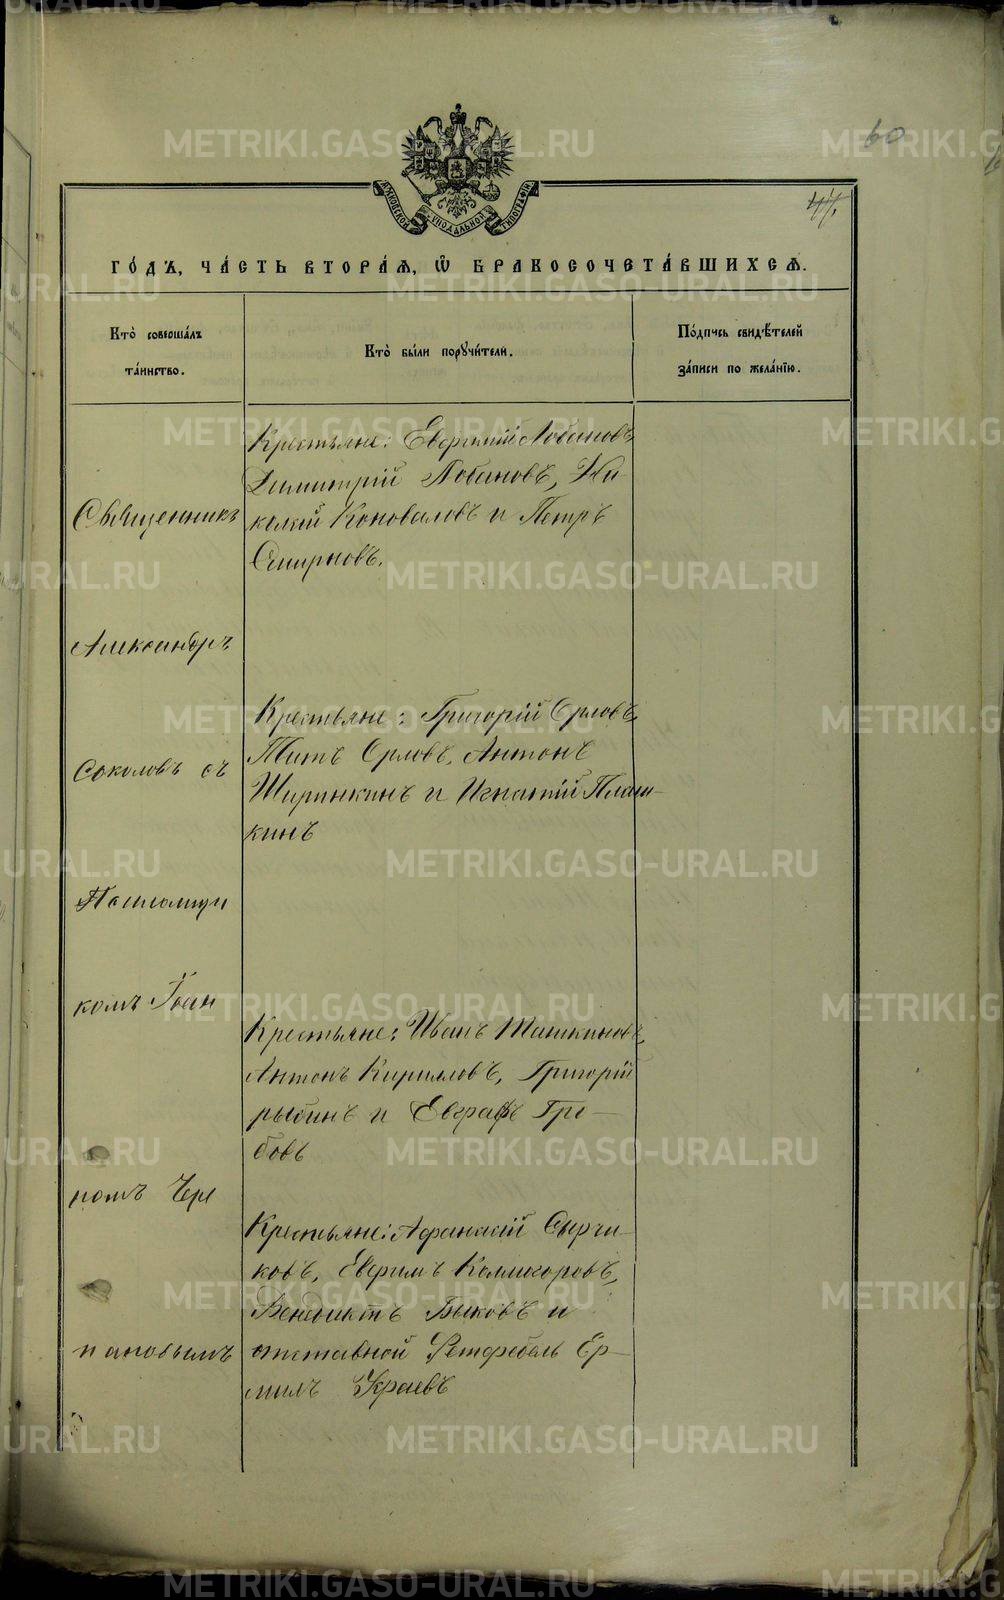 60
44.
МОСКОВСКОЙ СѴНОДАЛЬНОЙ ТИПОГРАФІИ
ГО́ДЪ, ЧА́СТЬ ВТОРА́Ѧ, Ѡ҆ БРАКОСОЧЕТА́ВШИХСѦ.
Кто̀ совершáлъ
тáинство.
Кто̀ бы́ли порꙋчи́тели.
По́дпись свидѣ́телей
зáписи по желáнїю.
Священникъ
Александръ
Соколовъ съ
Псаломщи
комъ Іоан
номъ Чере
пановымъ
Крестьяне: Евгений Лобановъ,
Димитрій Лобановъ, Ни-
колай Коноваловъ и Петръ
Смирновъ.
Крестьяне: Григорій Орловъ,
Титъ Орловъ, Антонъ
Ширинкинъ и Игнатій Плаш-
кинъ
Крестьяне: Иванъ Ташкиновъ,
Антонъ Кирилловъ, Григорій
Рыбинъ и Евграфъ Гре-
бовъ
Крестьяне: Афанасій Сырчи-
ковъ, Ефимъ Колмогоровъ,
Венедиктъ Быковъ и
отставной Фельдфебель Ер-
милъ Краевъ
METRIKI.GASO-URAL.RU